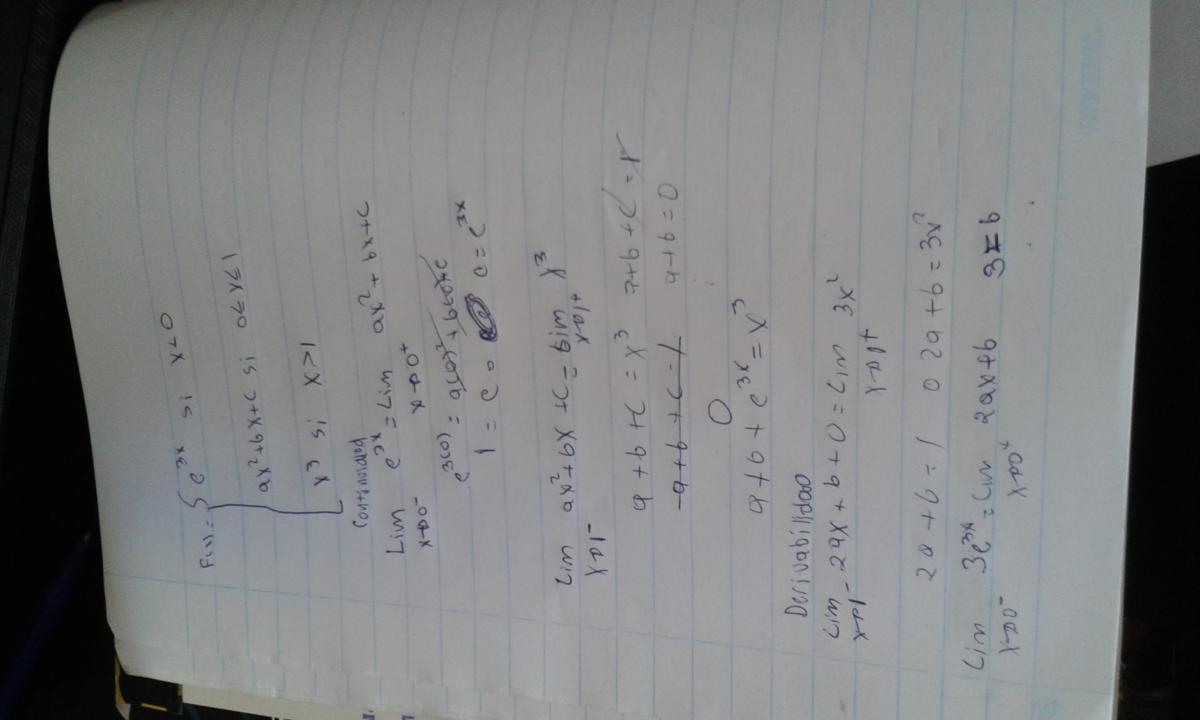 F(x) = { e^3x si x<0
ax² + bx + c si 0≤x≤1
x³ si x>1
Continuidad
Lim e^3x = Lim ax² + bx + c
x→0⁻ x→0⁺
e^3(0) = a(0)² + b(0) + c
1 = c o c = e^3x
Lim ax² + bx + c = Lim x³
x→1⁻ x→1⁺
a + b + c = x³
-a + b + c = 1 a + b = 0
O
a + b + e^3x = x³
Derivabilidad
Lim 2ax + b + 0 = Lim 3x²
x→1⁻ x→1⁺
2a + b = 1 o 2a + b = 3x²
Lim 3e^3x = Lim 2ax + b 3 = b
x→0⁻ x→0⁺